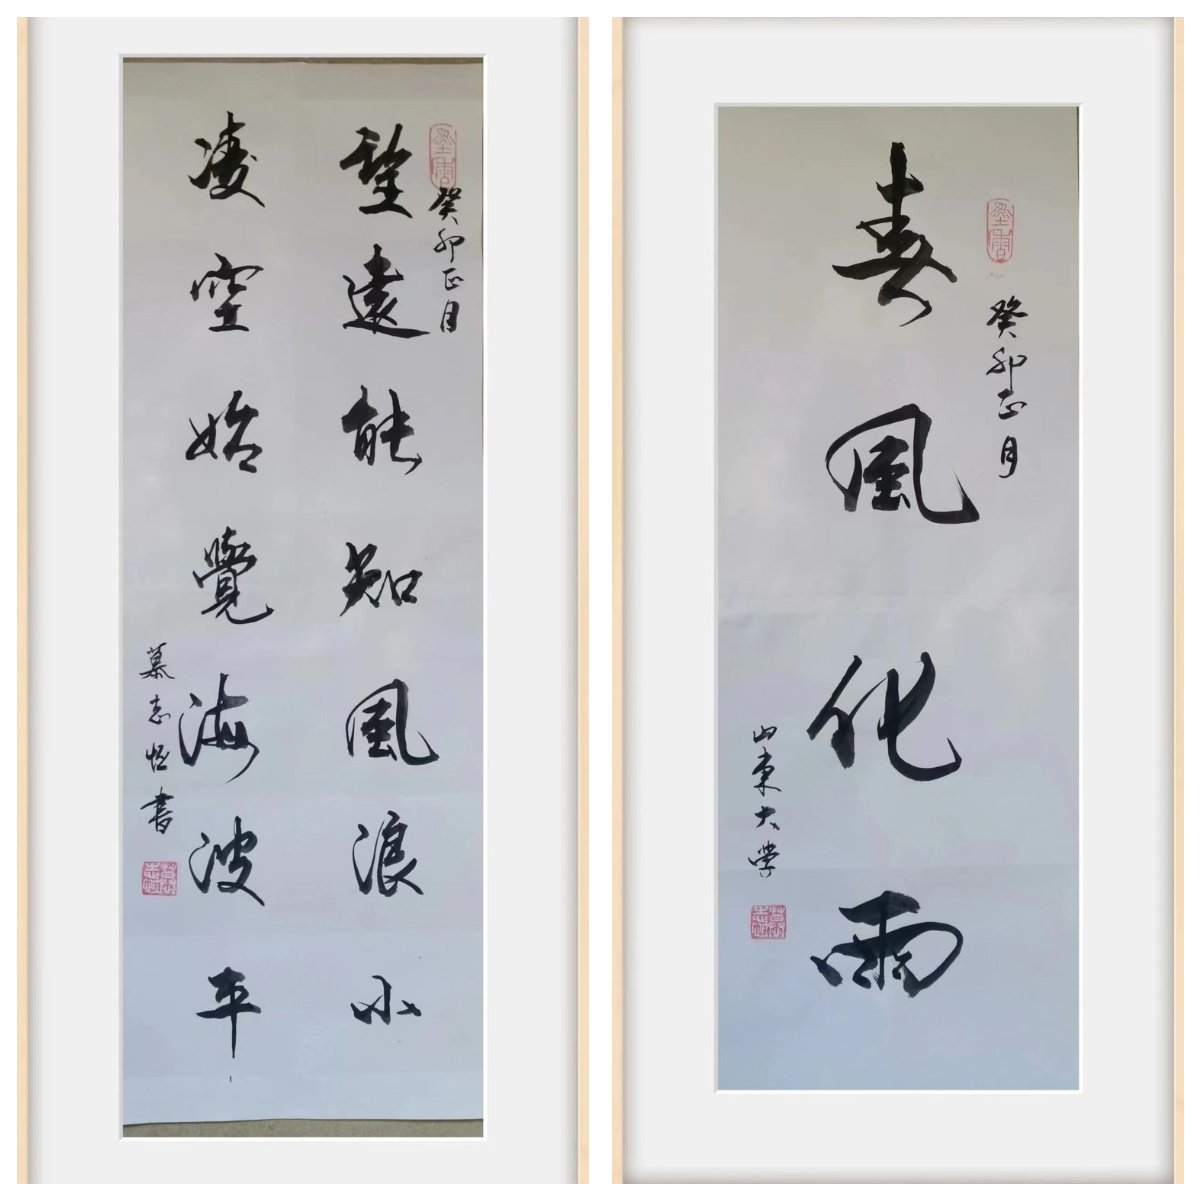 癸卯正月
望遠能知風浪小
凌空始覺海波平
慕志恒書
癸卯正月
春風化雨
山東大学